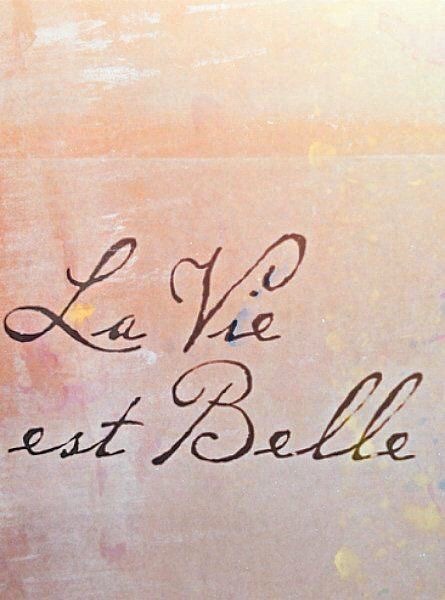 La Vie
est Belle